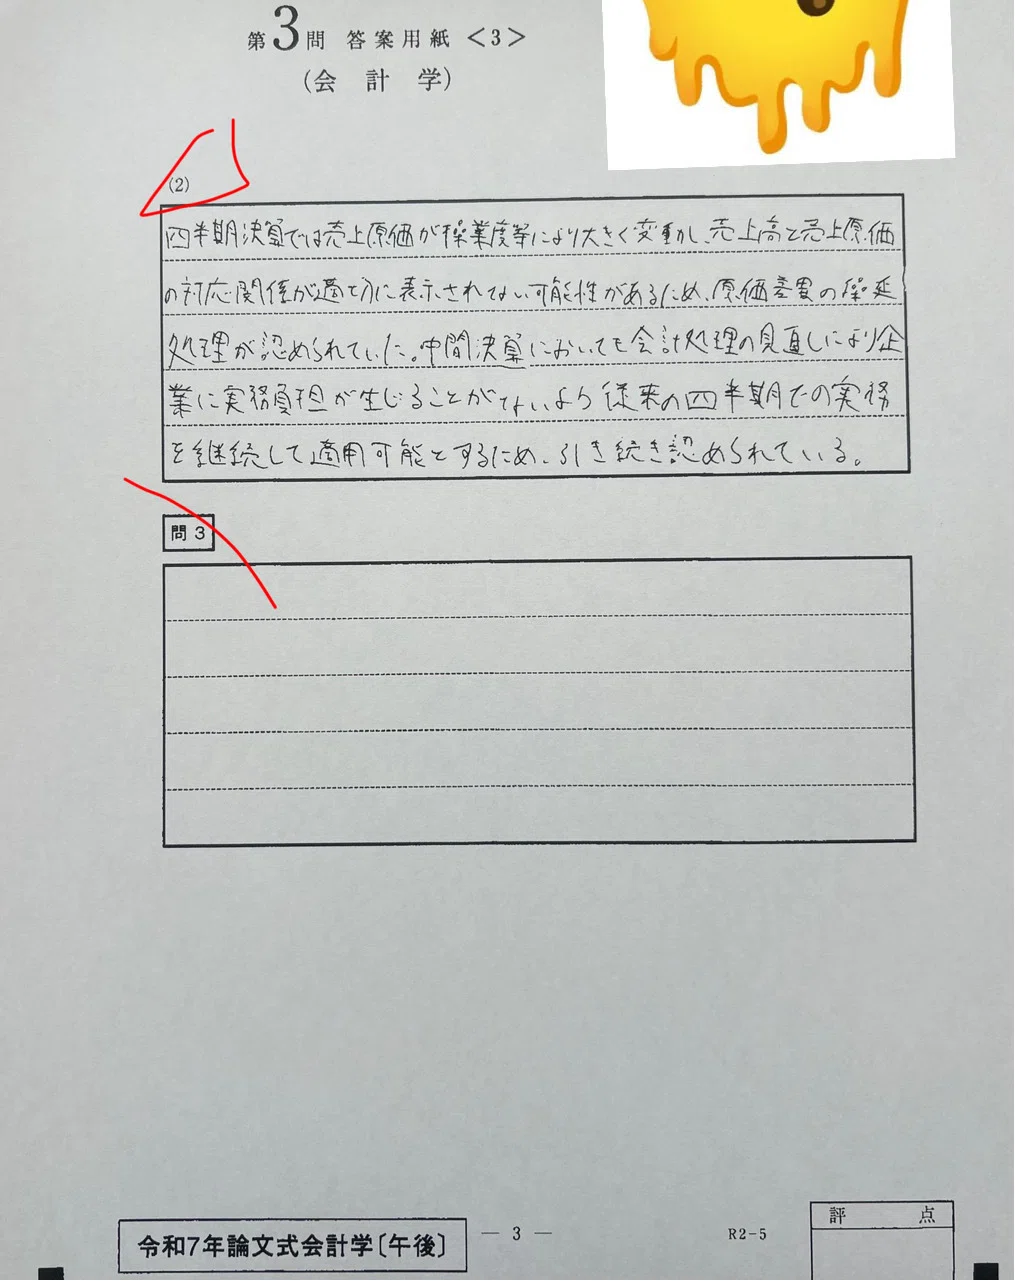 第3問 答案用紙<3>
(会計学)
(2)
四半期決算では売上原価が操業度等により大きく変動し、売上高と売上原価
の対応関係が適切に表示されない可能性があるため、原価差異の繰延
処理が認められていた。中間決算においても会計処理の見直しにより企
業に実務負担が生じることがないよう従来の四半期での実務
を継続して適用可能とするため、引き続き認められている。
問3
評点
令和7年論文式会計学〔午後〕
— 3 —
R2-5